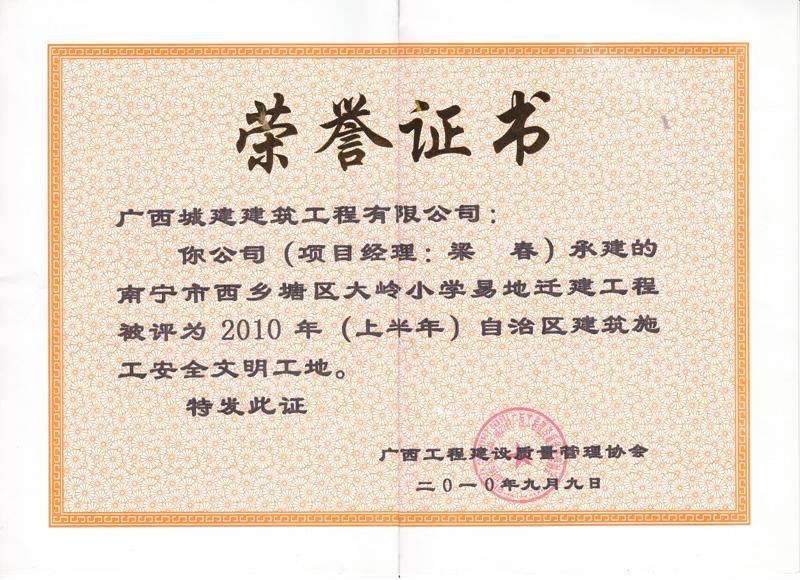 荣誉证书
广西城建建筑工程有限公司：
你公司（项目经理：梁　春）承建的
南宁市西乡塘区大岭小学易地迁建工程
被评为 2010 年（上半年）自治区建筑施
工安全文明工地。
特发此证
广西工程建设质量管理协会
二〇一〇年九月九日